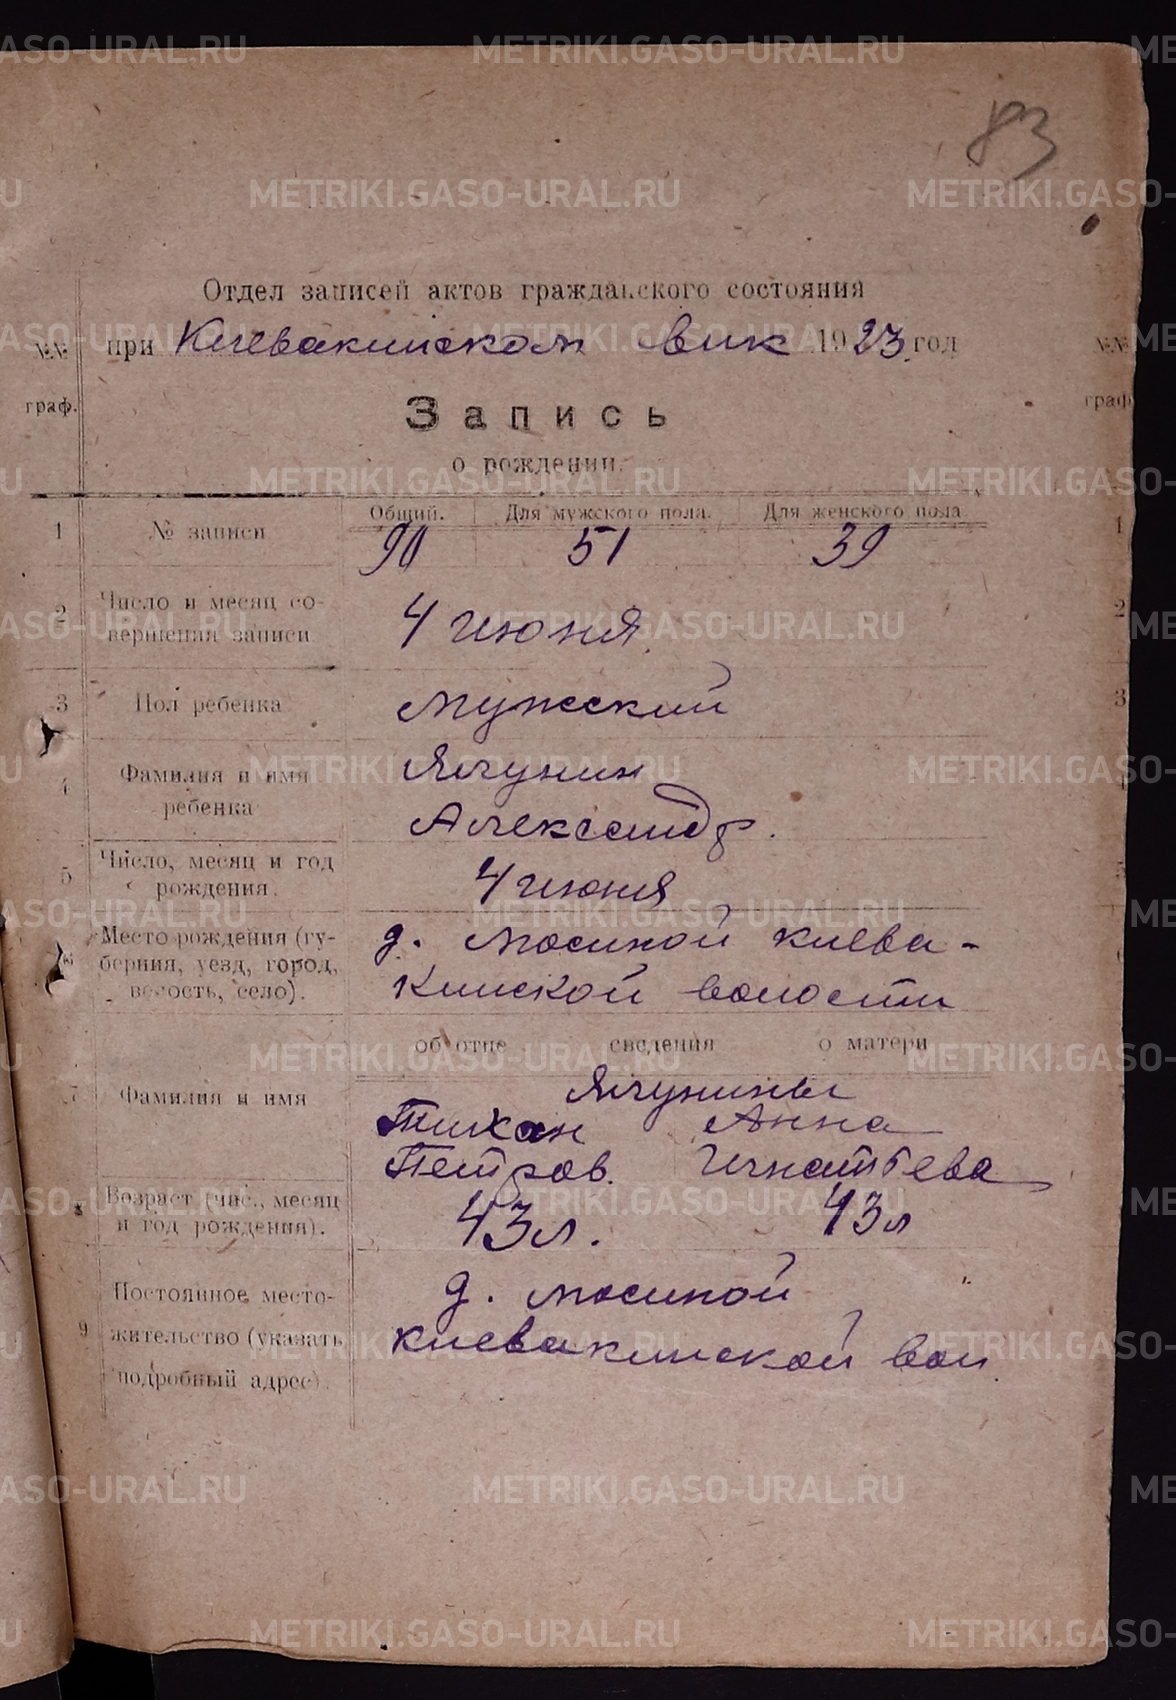 83
Отдел записей актов гражданского состояния
№№ при Клевакинском вик 1923 год
граф.
Запись
о рождении.
Общий. Для мужского пола. Для женского пола
1 № записи 90 51 39
2 Число и месяц со-
вершения записи 4 июня
3 Пол ребенка мужский
4 Фамилия и имя
ребенка Ялунин
Александр.
5 Число, месяц и год
рождения. 4 июня
Место рождения (гу-
берния, уезд, город,
волость, село).
д. Мосиной клева-
кинской волости
об отце сведения о матери
7 Фамилия и имя Ялунины
Тихан Анна
Петров. Игнатьева
Возраст (чис., месяц
и год рождения). 43 л. 43 л
9 Постоянное место-
жительство (указать
подробный адрес).
д. мосиной
клевакинской вол
METRIKI.GASO-URAL.RU